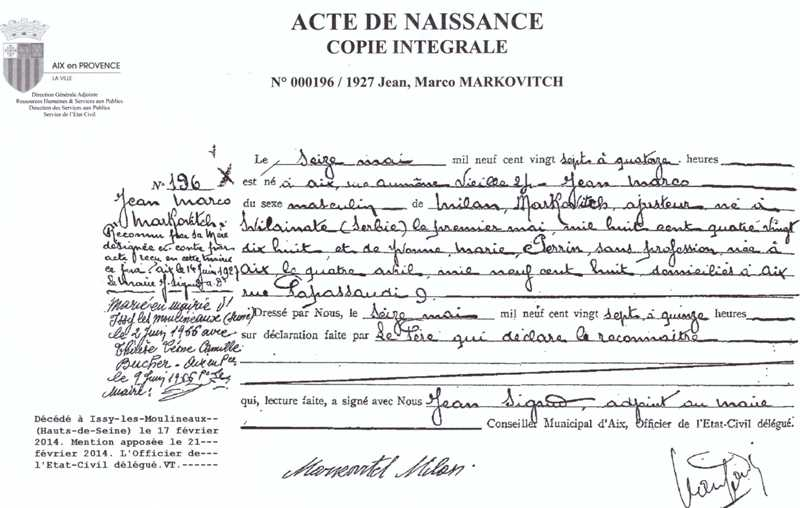 ACTE DE NAISSANCE
COPIE INTEGRALE
N° 000196 / 1927 Jean, Marco MARKOVITCH
AIX en PROVENCE
LA VILLE
Direction Générale Adjointe
Ressources Humaines & Services aux Publics
Direction des Services aux Publics
Service de l'Etat Civil
Le seize mai mil neuf cent vingt sept à quatorze heures
est né à aix, rue aumône Vieille Jean Marco
du sexe masculin de Milan, Markovitch, ajusteur né à
Wilainate (Serbie) le premier mai, mil huit cent quatre vingt
dix huit et de Yvonne, Marie, Perrin, sans profession, née à
aix le quatre avril, mil neuf cent huit domiciliés à aix
rue Lapassaudi 9
Dressé par Nous, le seize mai mil neuf cent vingt sept à quinze heures
sur déclaration faite par Le Père qui déclare le reconnaître
qui, lecture faite, a signé avec Nous Jean Sigaud, adjoint au maire
Conseiller Municipal d'Aix, Officier de l'Etat-Civil délégué.
N° 196
Jean Marco
Markovitch
Reconnu par sa Mère
désignée ci contre par
acte reçu en cette mairie
aix le 14 juin 1927
Le Maire
Marié en mairie d'
Issy les moulineaux (Seine)
le 2 juin 1966 avec
Camille
Bucher. Aix en Pce
le 9 juin 1966
Maire:
Décédé à Issy-les-Moulineaux--
(Hauts-de-Seine) le 17 février
2014. Mention apposée le 21---
février 2014. L'Officier de---
l'Etat-Civil délégué.VT.------
Milan